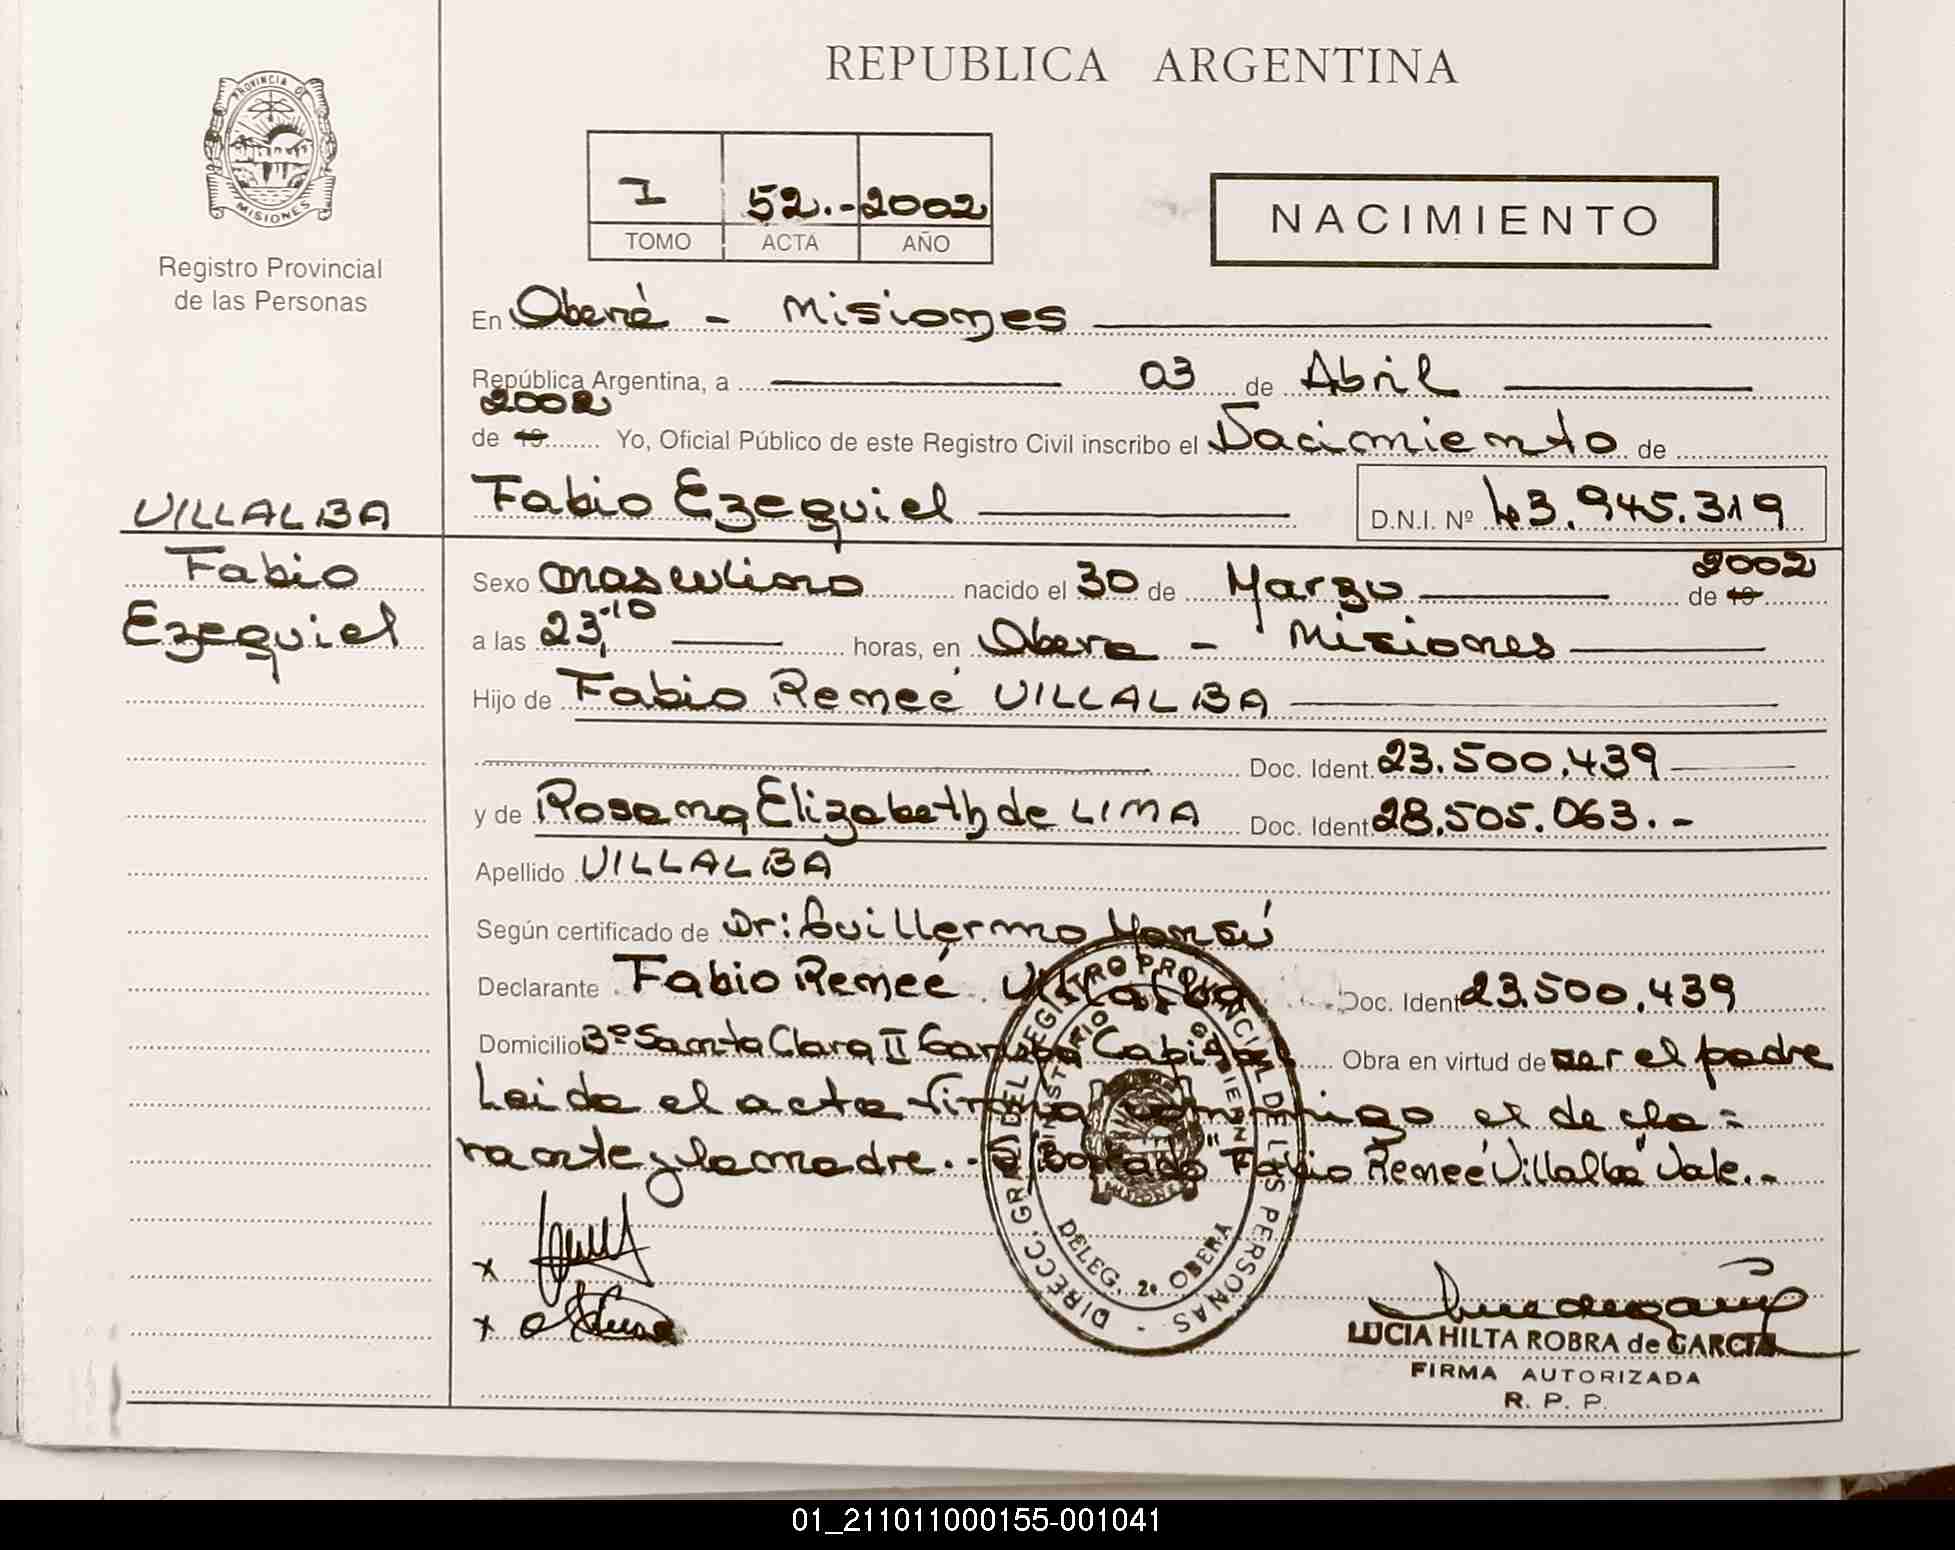 REPUBLICA ARGENTINA
PROVINCIA DE
MISIONES
Registro Provincial
de las Personas
I 52.- 2002
TOMO ACTA AÑO
NACIMIENTO
En Oberá - Misiones
República Argentina, a 03 de Abril
2002
de 19 Yo, Oficial Público de este Registro Civil inscribo el Nacimiento de
VILLALBA
Fabio Ezequiel D.N.I. Nº 43.945.319
Fabio
Ezequiel
2002
Sexo masculino nacido el 30 de Marzo de 19
a las 23,10 horas, en Obera - Misiones
Hijo de Fabio Reneé VILLALBA
Doc. Ident. 23.500.439
y de Rosana Elizabeth de LIMA Doc. Ident. 28.505.063.-
Apellido VILLALBA
Según certificado de Dr: Guillermo
Declarante Fabio Reneé Villalba Doc. Ident. 23.500.439
Domicilio Bº Santa Clara II Garupa Capital Obra en virtud de ser el padre
Leida el acta firma conmigo el decla=
rante y la madre.- S/borrado "Fabio Reneé Villalba" Vale.-
DIRECC. GRAL. DEL REGISTRO PROVINCIAL DE LAS PERSONAS -
MINISTERIO GOBIERNO
MISIONES
DELEG. 2ª OBERA
x
x
LUCIA HILTA ROBRA de GARCIA
FIRMA AUTORIZADA
R. P. P.
01_211011000155-001041